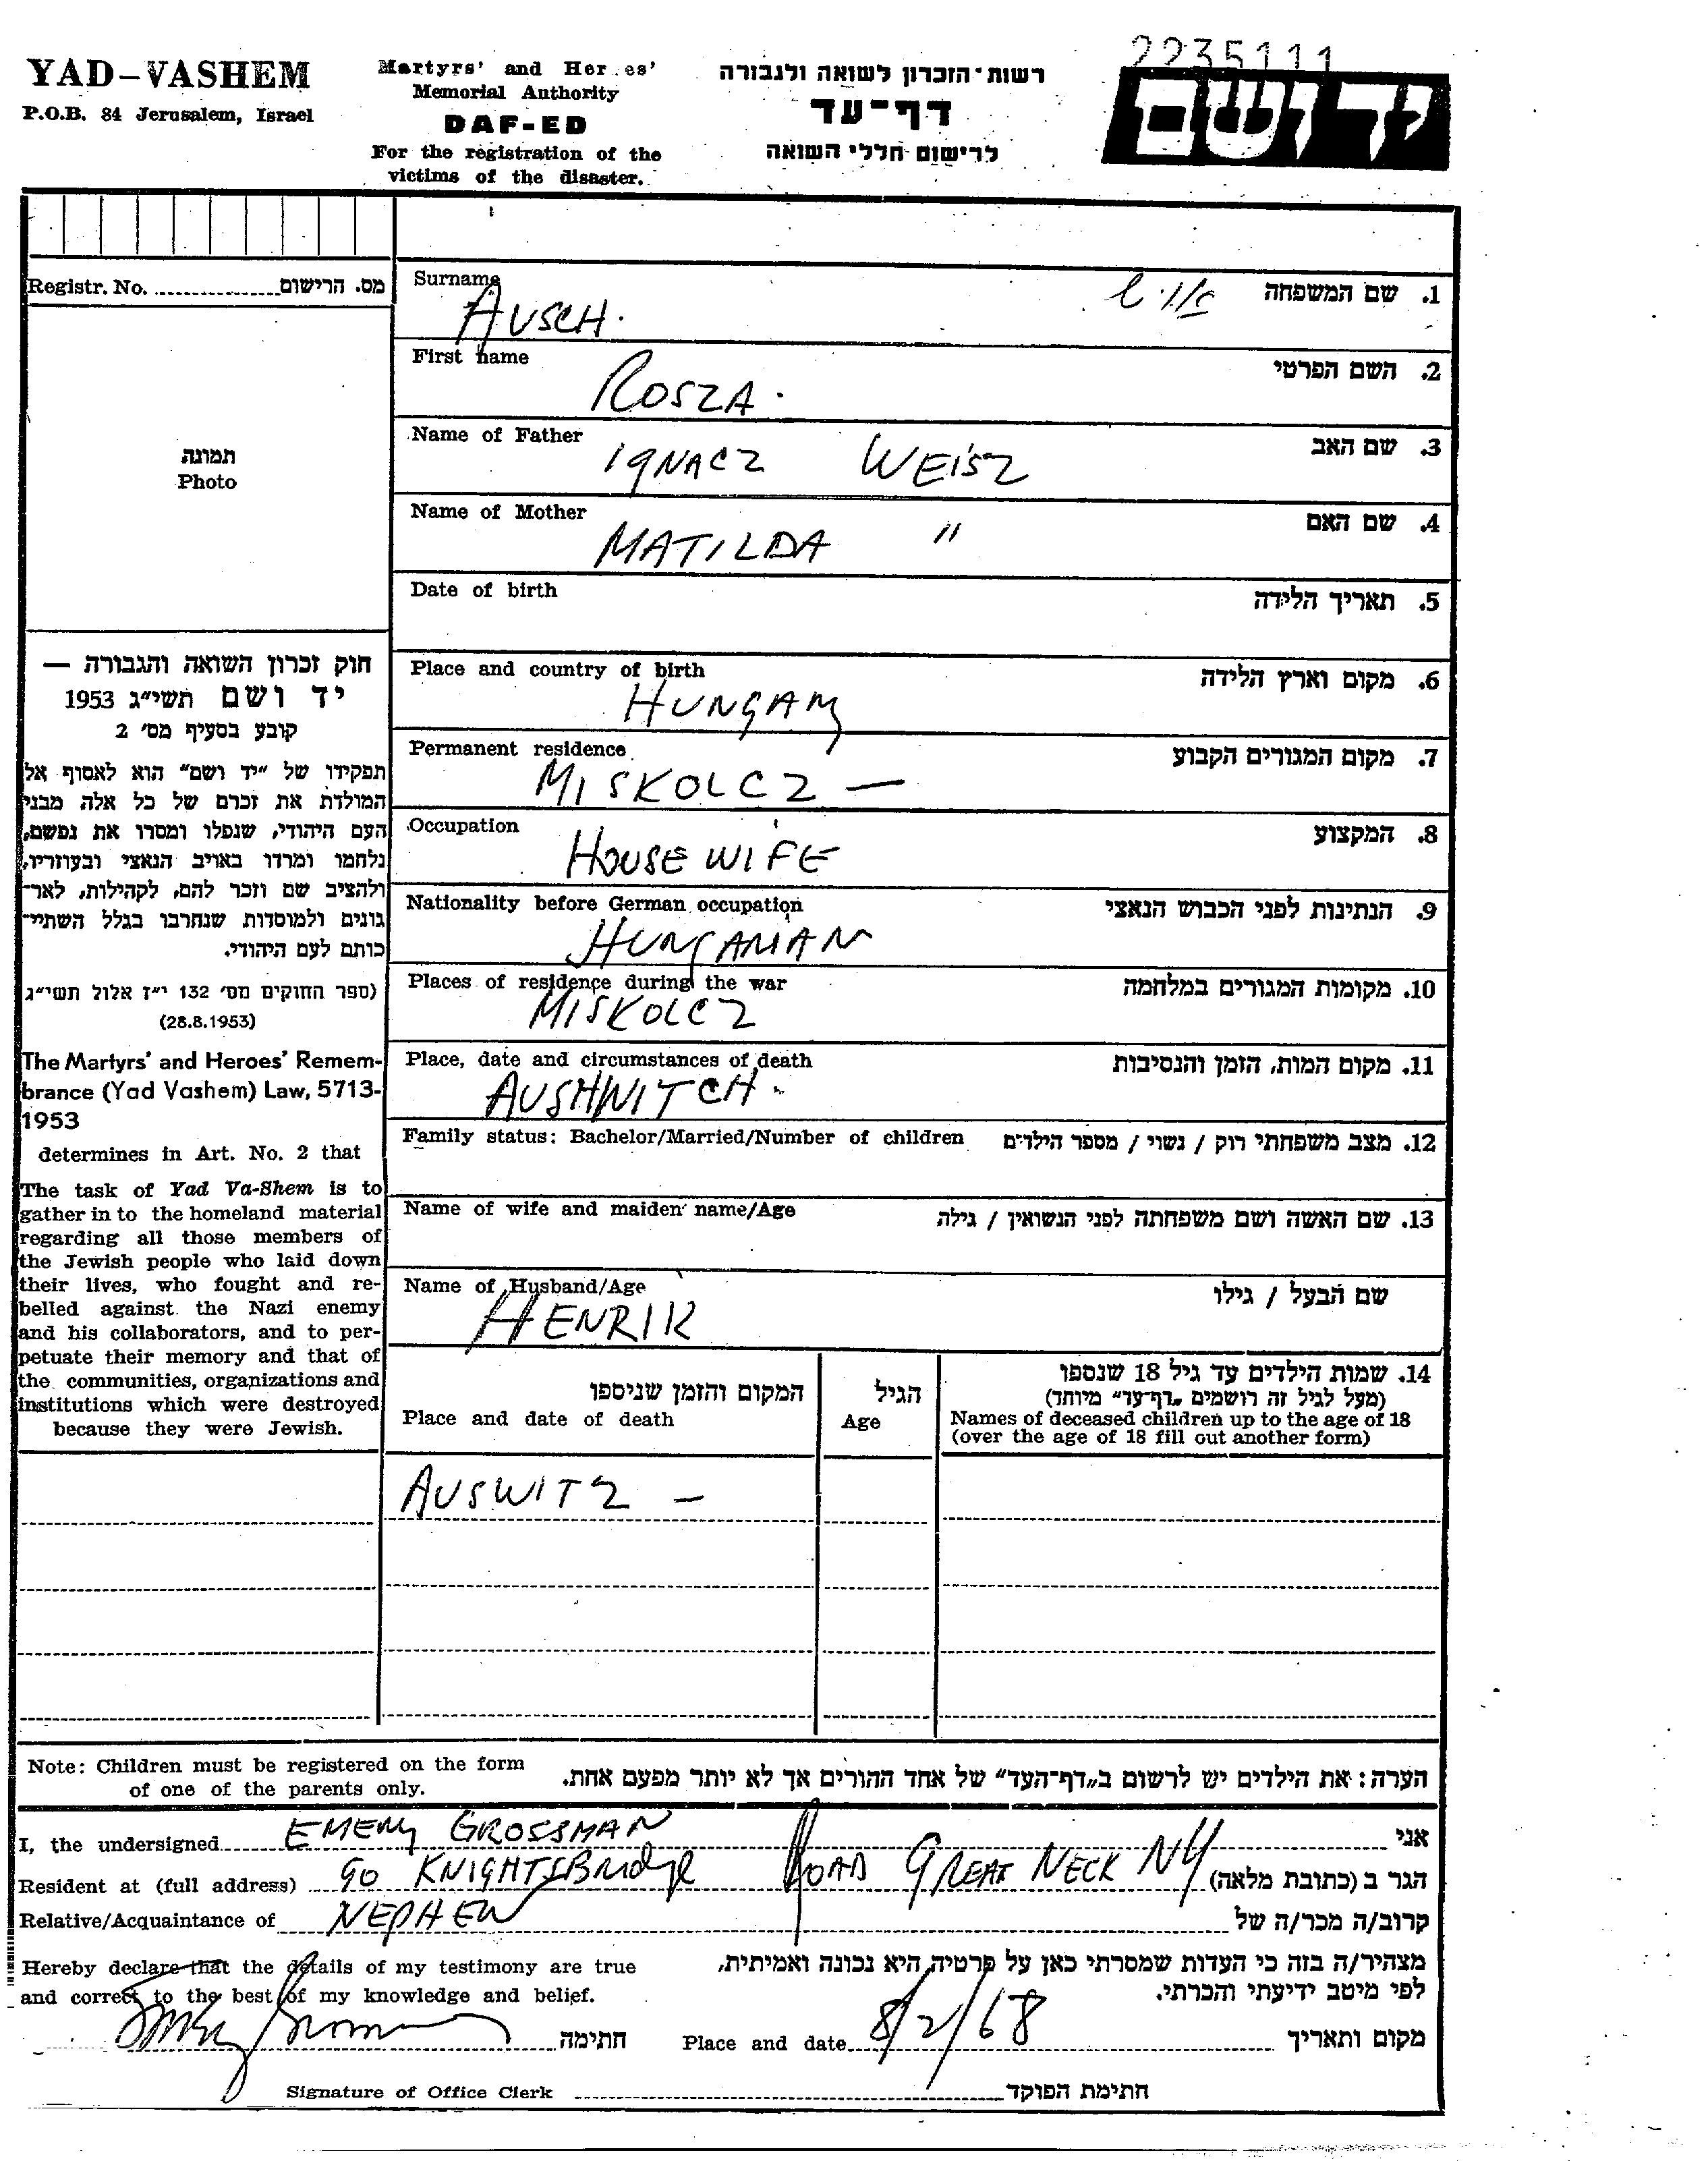 2235111
YAD-VASHEM
P.O.B. 84 Jerusalem, Israel
Martyrs' and Her es'
Memorial Authority
DAF-ED
For the registration of the
victims of the disaster.
רשות-הזכרון לשואה ולגבורה
דף-עד
לרישום חללי השואה
יד ושם
Registr. No. מס. הרישום
תמונה
Photo
חוק זכרון השואה והגבורה —
יד ושם תשי״ג 1953
קובע בסעיף מס׳ 2
תפקידו של ״יד ושם״ הוא לאסוף אל
המולדת את זכרם של כל אלה מבני
העם היהודי, שנפלו ומסרו את נפשם,
נלחמו ומרדו באויב הנאצי ובעוזריו,
ולהציב שם וזכר להם, לקהילות, לאר-
גונים ולמוסדות שנחרבו בגלל השתיי-
כותם לעם היהודי.
(ספר החוקים מס׳ 132 י״ז אלול תשי״ג
(28.8.1953)
The Martyrs' and Heroes' Remem-
brance (Yad Vashem) Law, 5713-
1953
determines in Art. No. 2 that
The task of Yad Va-Shem is to
gather in to the homeland material
regarding all those members of
the Jewish people who laid down
their lives, who fought and re-
belled against the Nazi enemy
and his collaborators, and to per-
petuate their memory and that of
the communities, organizations and
institutions which were destroyed
because they were Jewish.
Surname 1. שם המשפחה
AUSCH. אויש
First name 2. השם הפרטי
ROSZA.
Name of Father 3. שם האב
IGNACZ WEISZ
Name of Mother 4. שם האם
MATILDA "
Date of birth 5. תאריך הלידה
Place and country of birth 6. מקום וארץ הלידה
HUNGARY
Permanent residence 7. מקום המגורים הקבוע
MISKOLCZ —
Occupation 8. המקצוע
HOUSE WIFE
Nationality before German occupation 9. הנתינות לפני הכבוש הנאצי
HUNGARIAN
Places of residence during the war 10. מקומות המגורים במלחמה
MISKOLCZ
Place, date and circumstances of death 11. מקום המות, הזמן והנסיבות
AUSHWITCH.
Family status: Bachelor/Married/Number of children 12. מצב משפחתי רוק / נשוי / מספר הילדים
Name of wife and maiden name/Age 13. שם האשה ושם משפחתה לפני הנשואין / גילה
Name of Husband/Age שם הבעל / גילו
HENRIK
14. שמות הילדים עד גיל 18 שנספו
(מעל לגיל זה רושמים „דף-עד״ מיוחד)
Names of deceased children up to the age of 18
(over the age of 18 fill out another form)
הגיל
Age
המקום והזמן שניספו
Place and date of death
AUSWITZ —
Note: Children must be registered on the form
of one of the parents only.
הערה: את הילדים יש לרשום ב„דף-העד״ של אחד ההורים אך לא יותר מפעם אחת.
I, the undersigned EMERY GROSSMAN אני
Resident at (full address) 90 KNIGHTSBRIDGE ROAD GREAT NECK NY הגר ב (כתובת מלאה)
Relative/Acquaintance of NEPHEW קרוב/ה מכר/ה של
Hereby declare that the details of my testimony are true
and correct to the best of my knowledge and belief.
מצהיר/ה בזה כי העדות שמסרתי כאן על פרטיה היא נכונה ואמיתית,
לפי מיטב ידיעתי והכרתי.
חתימה Place and date 8/2/68 מקום ותאריך
Signature of Office Clerk חתימת הפוקד